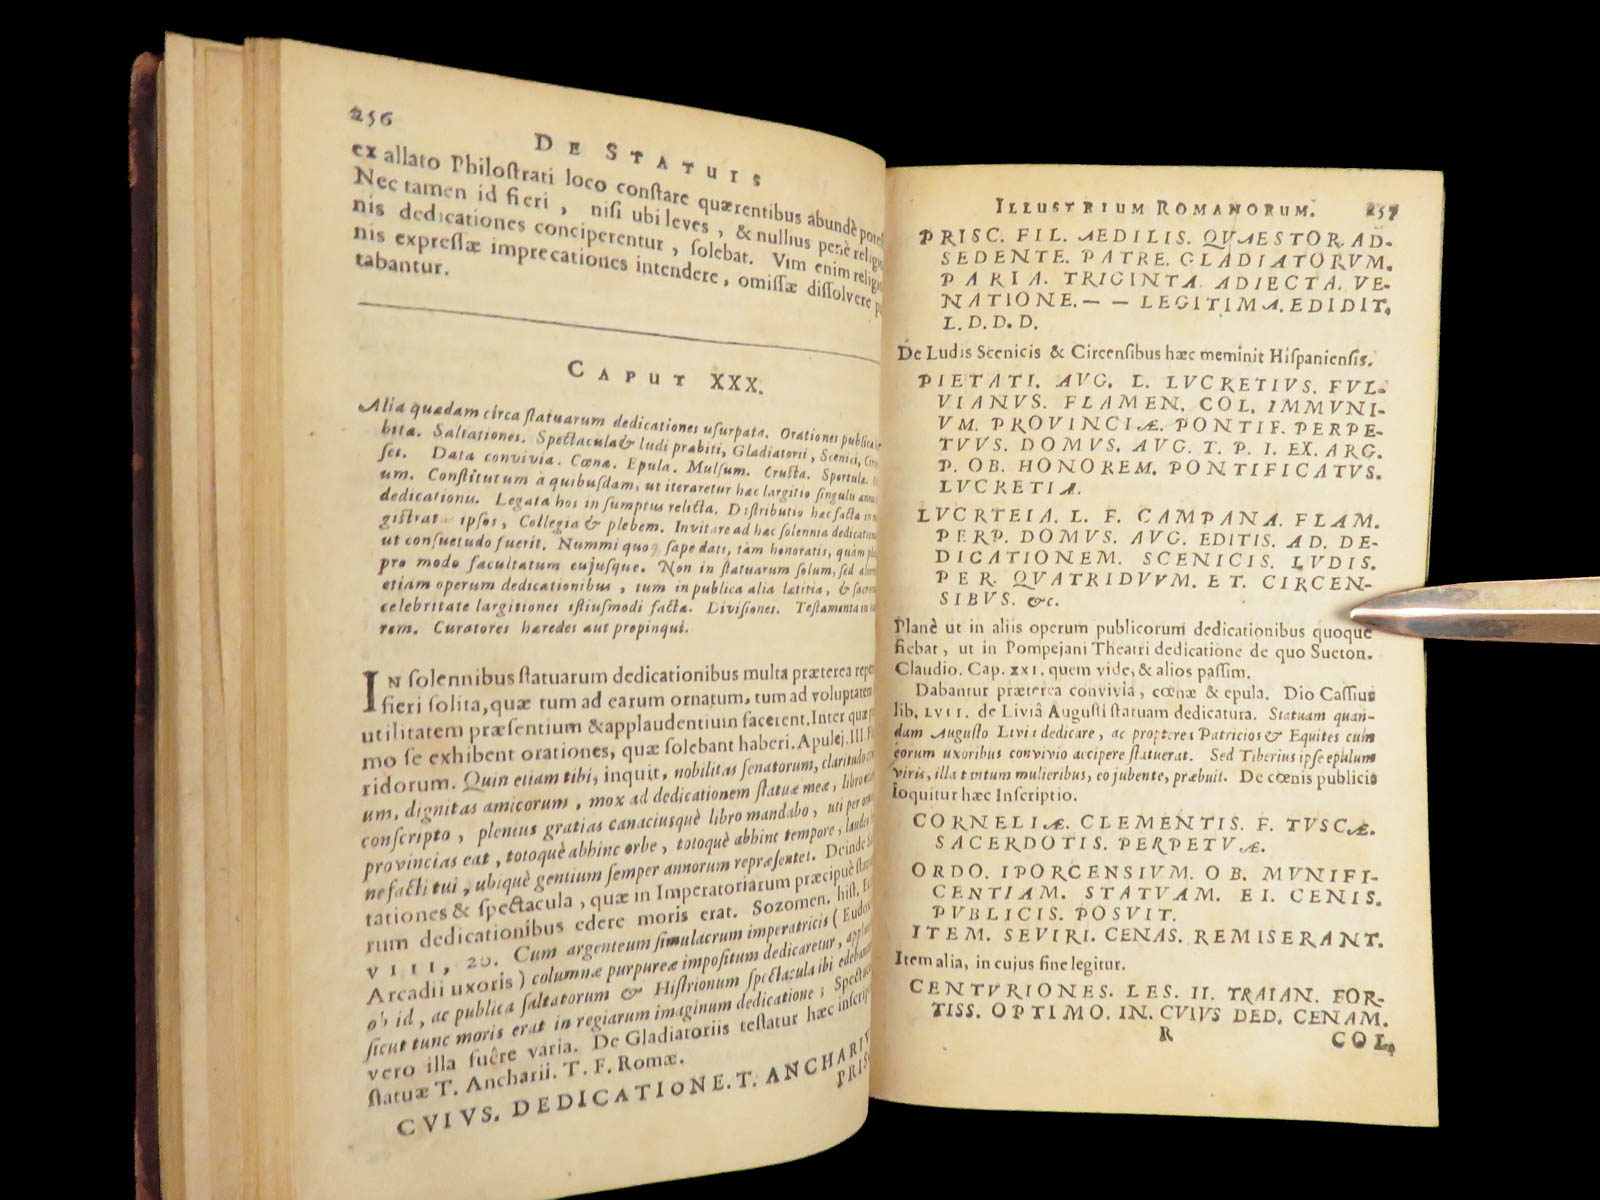 256
DE STATUIS
ex allato Philoſtrati loco conſtare quærentibus abundè
Nec tamen id fieri, niſi ubi leves, & nullius penè
nis dedicationes conciperentur, ſolebat. Vim enim
nis expreſſæ imprecationes intendere, omiſſæ diſſolvere
tabantur.
CAPUT XXX.
Alia quædam circa ſtatuarum dedicationes uſurpata. Orationes publicæ
bitæ. Saltationes. Spectacula & ludi præbiti, Gladiatorii, Scenici,
ſes. Data convivia. Cœnæ. Epula. Mulſum. Cruſta. Sportula.
um. Conſtitutum à quibuſdam, ut iteraretur hæc largitio ſingulis
dedicationis. Legata hos in ſumptus relicta. Diſtributio hæc facta in
giſtrat ipſos, Collegia & plebem. Invitare ad hæc ſolennia
ut conſuetudo fuerit. Nummi quoq; ſæpe dati, tàm honoratis, quàm
pro modo facultatum cujuſque. Non in ſtatuarum ſolum, ſed
etiam operum dedicationibus, tum in publica alia lætitia, &
celebritate largitiones iſtiuſmodi factæ. Diviſiones. Teſtamenta in
rem. Curatores hæredes aut propinqui.
IN ſolennibus ſtatuarum dedicationibus multa præterea
fieri ſolita, quæ tum ad earum ornatum, tum ad voluptatem
utilitatem præſentium & applaudentium facerent. Inter quæ
mo ſe exhibent orationes, quæ ſolebant haberi. Apulej. III.
ridorum. Quin etiam tibi, inquit, nobilitas ſenatorum, claritudo
um, dignitas amicorum, mox ad dedicationem ſtatuæ meæ, libro
conſcripto, plenius gratias canaciusquè libro mandabo, uti per
provincias eat, totoquè abhinc orbe, totoquè abbinc tempore,
nefacti tui, ubiquè gentium ſemper annorum repræſentet. Deinde
tationes & ſpectacula, quæ in Imperatoriarum præcipuè
rum dedicationibus edere moris erat. Sozomen. hiſt.
VIII, 20. Cum argenteum ſimulacrum imperatricis (
Arcadii uxoris) columnæ purpureæ impoſitum dedicaretur,
ob id, ac publica ſaltatorum & Hiſtrionum ſpectacula ibi
ſicut tunc moris erat in regiarum imaginum dedicatione;
vero illa fuêre varia. De Gladiatoriis teſtatur hæc
ſtatuæ T. Ancharii. T. F. Romæ.
CVIVS. DEDICATIONE. T. ANCHARIV
PRIS
ILLUSTRIUM ROMANORUM. 257
PRISC. FIL. AEDILIS. QVAESTOR. AD-
SEDENTE. PATRE. GLADIATORVM.
PARIA. TRIGINTA. ADIECTA. VE-
NATIONE. — — LEGITIMA. EDIDIT.
L. D. D. D.
De Ludis Scenicis & Circenſibus hæc meminit Hiſpanienſis.
PIETATI. AVG. L. LVCRETIVS. FVL-
VIANVS. FLAMEN. COL. IMMVNI-
VM. PROVINCIÆ. PONTIF. PERPE-
TVVS. DOMVS. AVG. T. P. I. EX. ARG.
P. OB. HONOREM. PONTIFICATVS.
LVCRETIA.
LVCRTEIA. L. F. CAMPANA. FLAM.
PERP. DOMVS. AVG. EDITIS. AD. DE-
DICATIONEM. SCENICIS. LVDIS.
PER. QVATRIDVVM. ET. CIRCEN-
SIBVS. &c.
Planè ut in aliis operum publicorum dedicationibus quoque
fiebat, ut in Pompejani Theatri dedicatione de quo Sueton.
Claudio. Cap. XXI. quem vide, & alios paſſim.
Dabantur præterea convivia, cœnæ & epula. Dio Caſſius
lib. LVII. de Liviâ Auguſti ſtatuam dedicatura. Statuam quan-
dam Auguſto Livia dedicare, ac propterea Patricios & Equites cum
eorum uxoribus convivio accipere ſtatuerat. Sed Tiberius ipſe epulum
viris, illa tantum mulieribus, eo jubente, præbuit. De cœnis publicis
loquitur hæc Inſcriptio.
CORNELIÆ. CLEMENTIS. F. TVSCÆ.
SACERDOTIS. PERPETVÆ.
ORDO. IPORCENSIVM. OB. MVNIFI-
CENTIAM. STATVAM. EI. CENIS.
PVBLICIS. POSVIT.
ITEM. SEVIRI. CENAS. REMISERANT.
Item alia, in cujus fine legitur.
CENTVRIONES. LES. II. TRAIAN. FOR-
TISS. OPTIMO. IN. CVIVS DED. CENAM.
R COL.